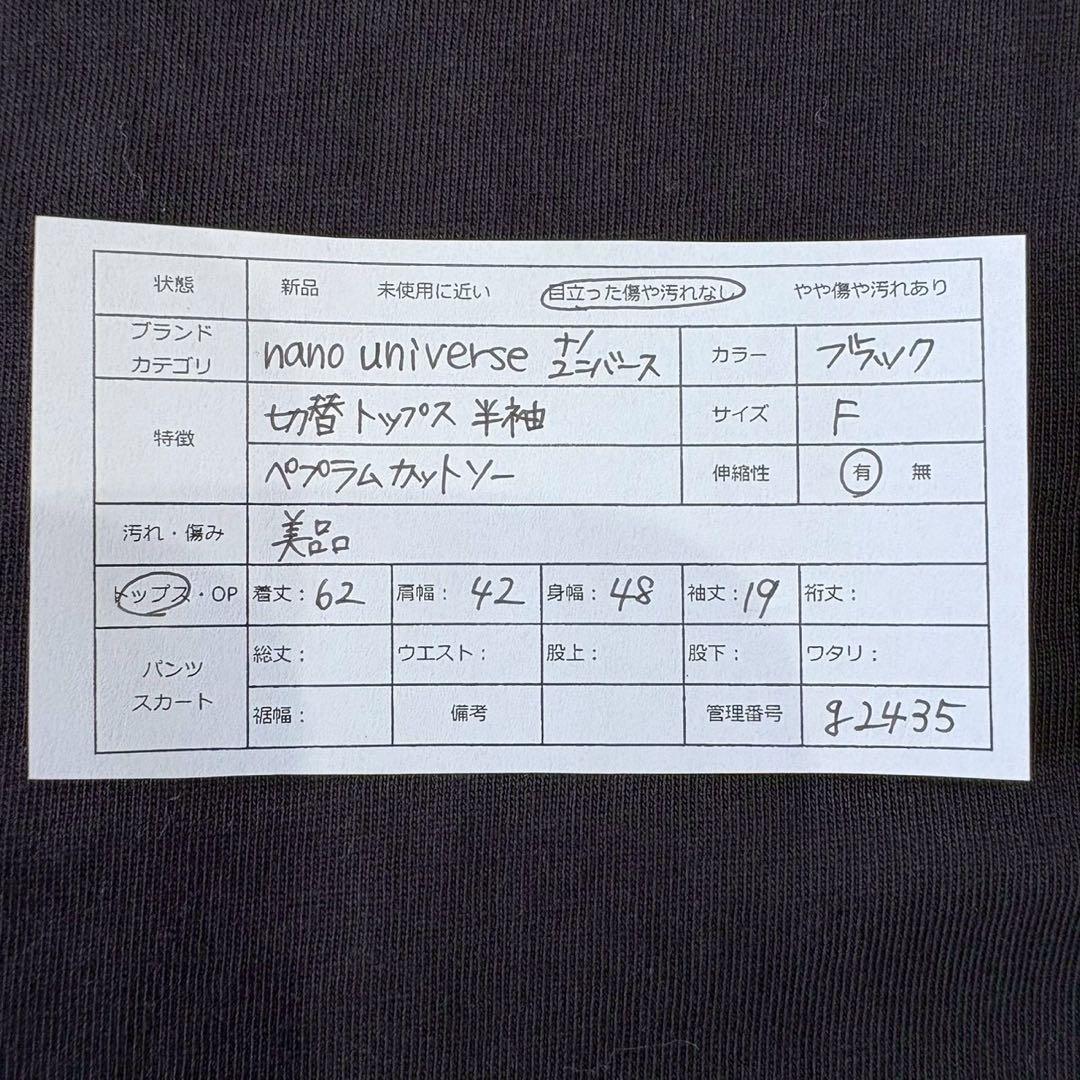 状態 新品 未使用に近い 目立った傷や汚れなし やや傷や汚れあり
ブランド
カテゴリ nano universe ナノ
ユニバース カラー ブラック
特徴 切替トップス 半袖 サイズ F
ペプラムカットソー 伸縮性 有 無
汚れ・傷み 美品
トップス・OP 着丈:62 肩幅:42 身幅:48 袖丈:19 裄丈:
パンツ
スカート 総丈: ウエスト: 股上: 股下: ワタリ:
裾幅: 備考 管理番号 g2435